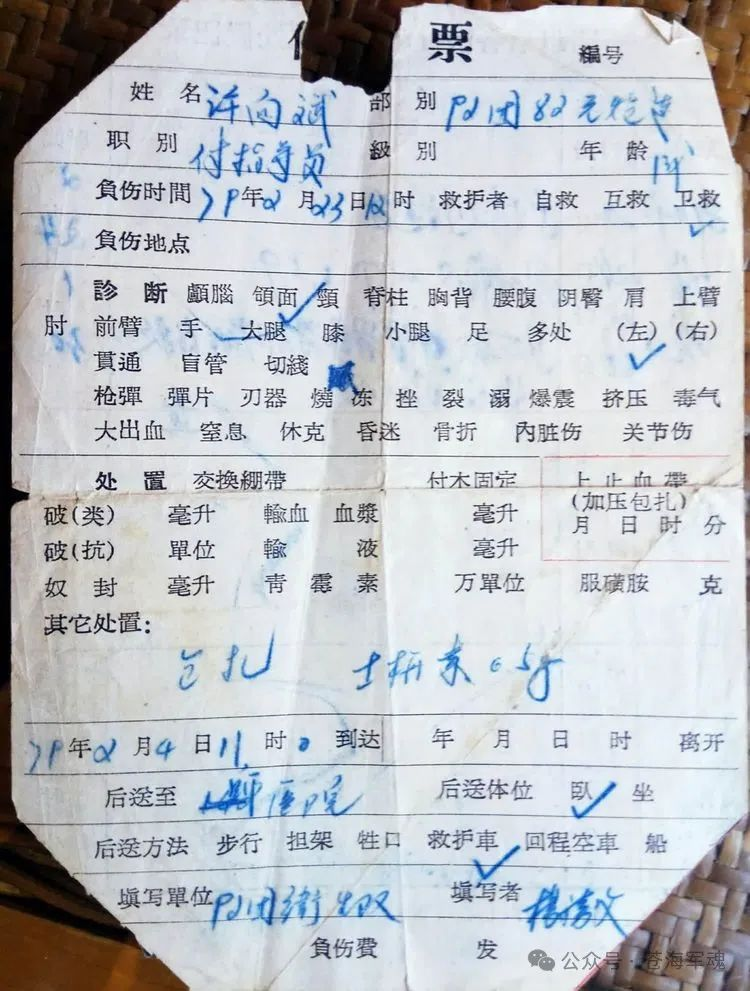 票 編号
姓 名 许向斌 部 別
职 別 付指导员 級 別 年 龄
負伤时間 79年2月23日12时 救护者 自救 互救 卫救
負伤地点
診 断 顱腦 領面 頸 脊柱 胸背 腰腹 阴臀 肩 上臂
肘 前臂 手 大腿 膝 小腿 足 多处 (左) (右)
貫通 盲管 切綫
枪彈 彈片 刃器 燒 冻 挫 裂 溺 爆震 挤压 毒气
大出血 窒息 休克 昏迷 骨折 內脏伤 关节伤
处 置 交換綳帶 付木固定 上止血帶
(加压包扎)
破(类) 毫升 輸血 血漿 毫升 月 日 时 分
破(抗) 單位 輸 液 毫升
奴 封 毫升 靑 霉 素 万單位 服磺胺 克
其它处置:
包扎 土霉素 0.5g
79年2月4日11时 到达 年 月 日 时 离开
后送至 医院 后送体位 臥 坐
后送方法 步行 担架 牲口 救护車 回程空車 船
填写單位 填写者
負伤費 发
公众号·苍海军魂